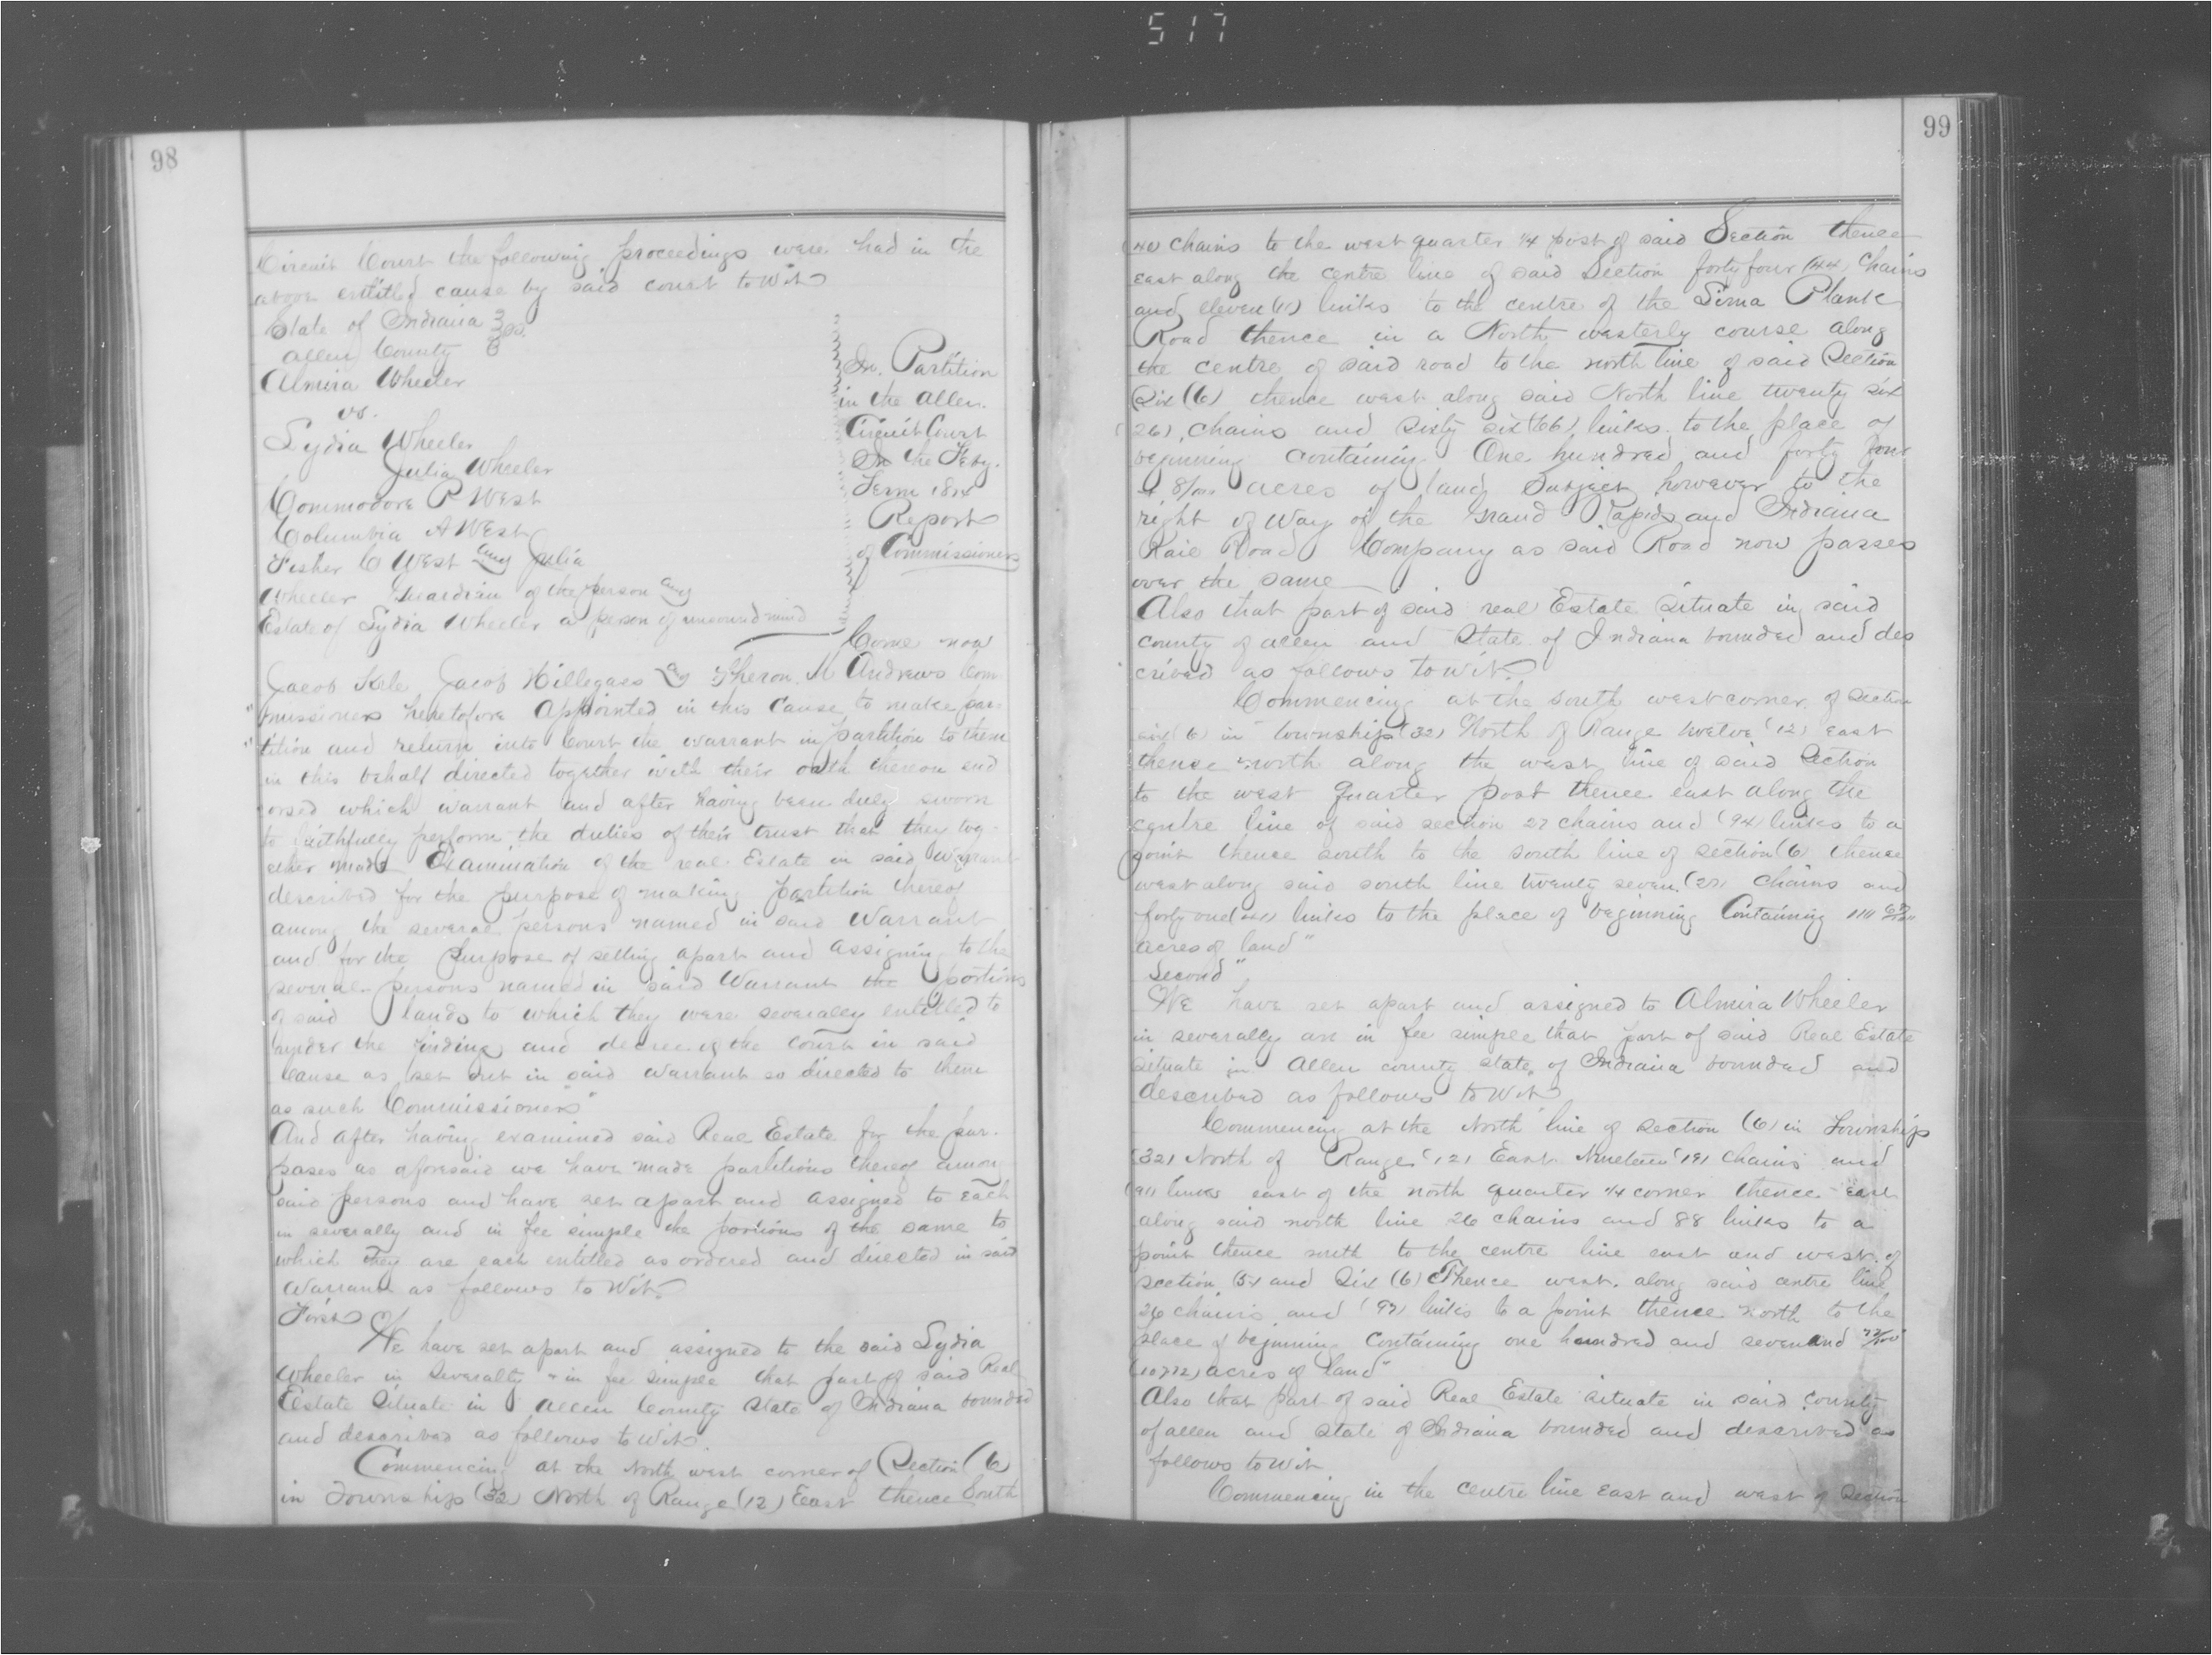 517
98
Circuit Court the following proceedings were had in the
above entitled cause by said court to wit
State of Indiana } ss.
Allen County }
Almira Wheeler
vs.
Lydia Wheeler
Julia Wheeler
Commodore P West
Columbia A West
Fisher C West and Julia
Wheeler Guardian of the person and
Estate of Lydia Wheeler a person of unsound mind
In Partition
in the Allen
Circuit Court
In the Feby.
Term
Report
of Commissioners
Come now
Jacob Kele Jacob Hillegass and Theron M Andrews Com
missioners heretofore appointed in this cause to make par=
tition and return into Court the warrant in partition to them
in this behalf directed together with their oath thereon end
orsed which warrant and after having been duly sworn
to faithfully perform the duties of their trust that they tog=
ether made Examination of the real Estate in said warrant
described for the purpose of making partition thereof
among the several persons named in said Warrant
and for the purpose of setting apart and assigning to the
several persons named in said Warrant the portions
of said lands to which they were severally entitled to
under the finding and decree of the Court in said
cause as set out in said warrant so directed to them
as such Commissioners"
And after having examined said Real Estate for the pur-
poses as aforesaid we have made partitions thereof among
said persons and have set apart and assigned to each
in severally and in fee simple the portions of the same to
which they are each entitled as ordered and directed in said
Warrant as follows to Wit.
First
We have set apart and assigned to the said Lydia
Wheeler in Severalty & in fee simple that part of said Real
Estate Situate in Allen County State of Indiana bounded
and described as follows to wit.
Commencing at the North west corner of Section (6)
in Township (32) North of Range (12) East thence South
99
(40) chains to the west quarter 1/4 post of said Section thence
East along the centre line of said Section forty four (44) chains
and eleven (11) links to the centre of the Lima Plank
Road thence in a North westerly course along
the centre of said road to the north line of said Section
Six (6) thence west along said North line twenty six
(26) chains and sixty six (66) links to the place of
beginning containing One hundred and forty four
acres of land Subject however to the
right of Way of the Grand Rapids and Indiana
Rail Road Company as said Road now passes
over the same
Also that part of said real Estate Situate in said
county of Allen and State of Indiana bounded and des
cribed as follows to wit.
Commencing at the south west corner of Section
six (6) in Township (32) North of Range twelve (12) east
thence north along the west line of said Section
to the west quarter post thence east along the
centre line of said section 27 chains and (94) links to a
point thence south to the south line of section (6) thence
west along said south line twenty seven (27) chains and
forty one (41) links to the place of beginning Containing
acres of land"
Second"
We have set apart and assigned to Almira Wheeler
in severally are in fee simple that part of said Real Estate
situate in Allen county state of Indiana bounded and
described as follows to Wit
Commencing at the North line of section (6) in Township
(32) North of Range (12) East Nineteen (19) chains and
(91) links east of the north quarter 1/4 corner thence east
along said north line 26 chains and 88 links to a
point thence south to the centre line east and west of
section (5) and Six (6) Thence west along said centre line
26 chains and (97) links to a point thence north to the
place of beginning Containing one hundred and seven and 72/100
(10772) acres of land"
Also that part of said Real Estate situate in said county
of Allen and State of Indiana bounded and described as
follows to wit
Commencing in the centre line East and west of Section